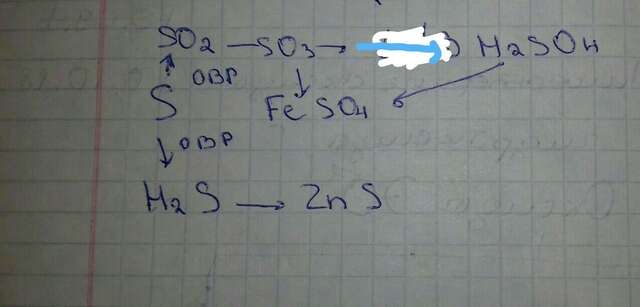 SO2 — SO3 → H2SO4
ОВР
S FeSO4
ОВР
H2S → ZnS